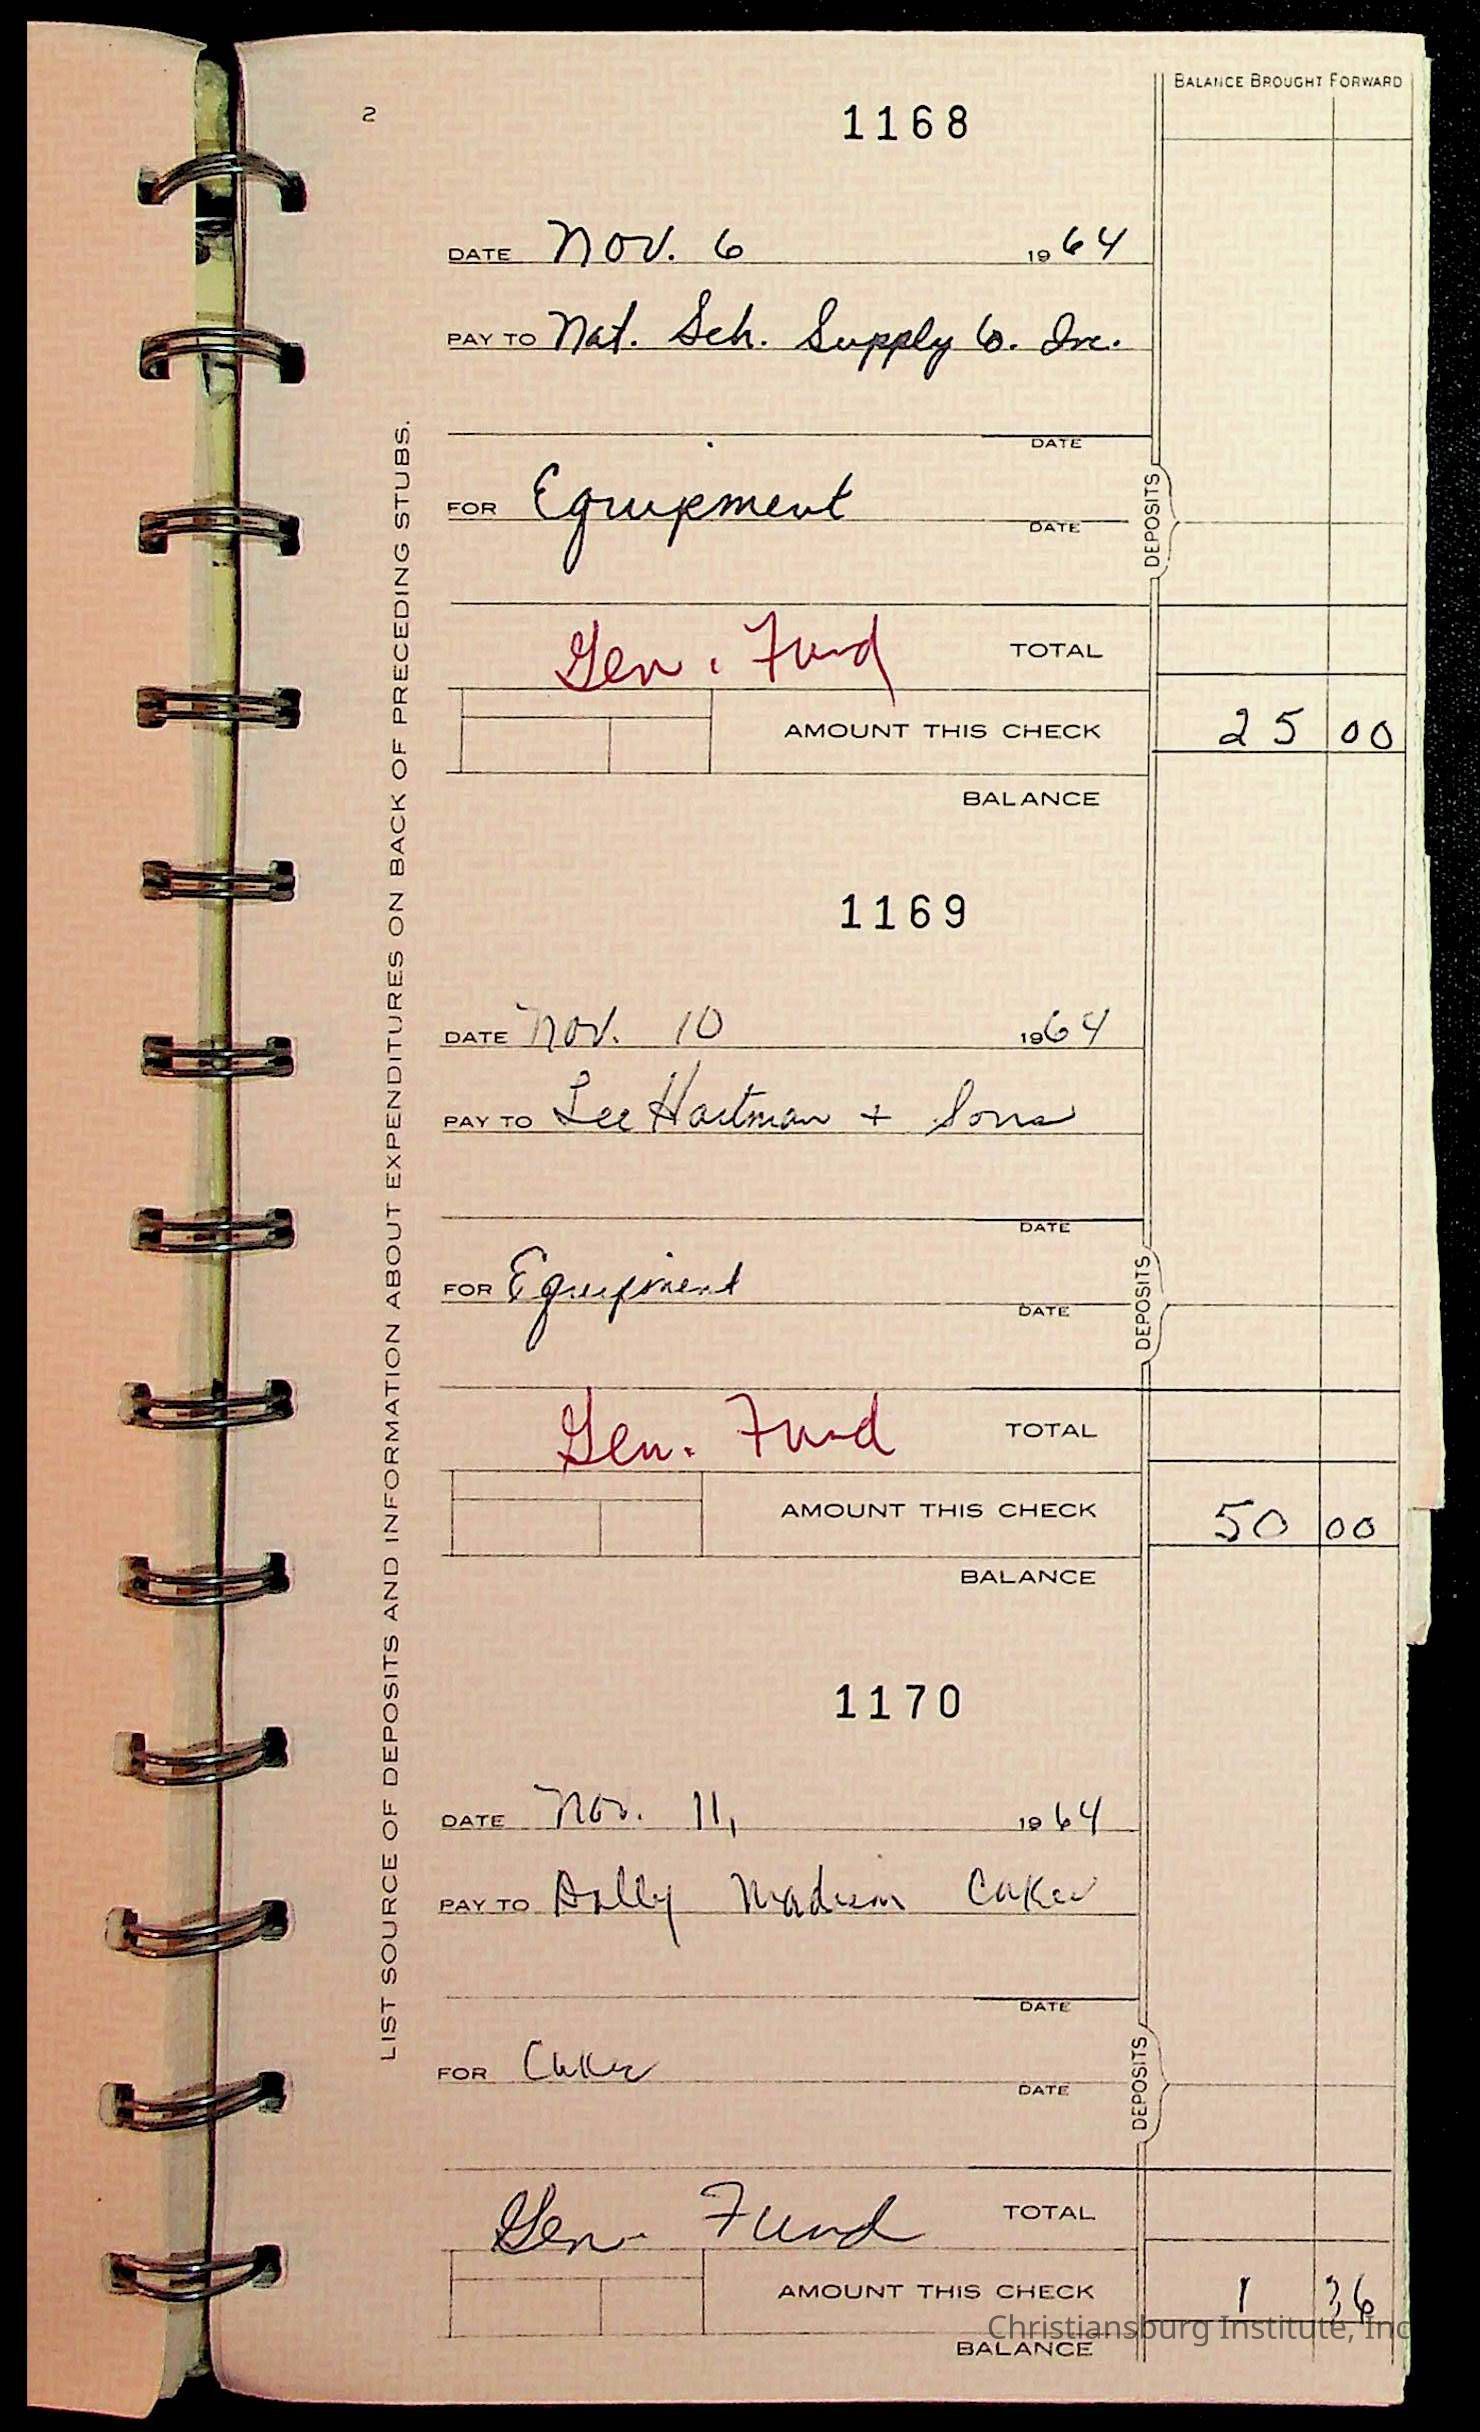 BALANCE BROUGHT FORWARD
2
1168
DATE Nov. 6 1964
PAY TO Nat. Sch. Supply Co. Inc.
DATE
FOR Equipment
DATE
DEPOSITS
Gen. Fund TOTAL
AMOUNT THIS CHECK 25 00
BALANCE
LIST SOURCE OF DEPOSITS AND INFORMATION ABOUT EXPENDITURES ON BACK OF PRECEDING STUBS.
1169
DATE Nov. 10 1964
PAY TO Lee Hartman + Sons
DATE
FOR Equipment
DATE
DEPOSITS
Gen. Fund TOTAL
AMOUNT THIS CHECK 50 00
BALANCE
1170
DATE Nov. 11, 1964
PAY TO Dolly Madison Cakes
DATE
FOR Cakes
DATE
DEPOSITS
Gen. Fund TOTAL
AMOUNT THIS CHECK 1 36
Christiansburg Institute, Inc
BALANCE